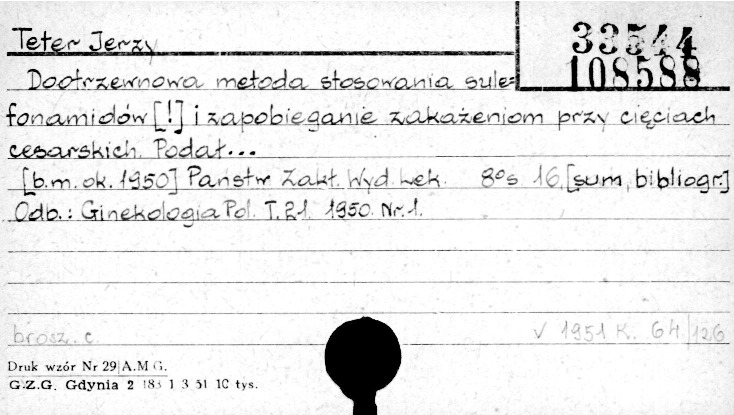 Teter Jerzy
33544
108588
Dootrzewnowa metoda stosowania sule=
fonamidów [!] i zapobieganie zakażeniom przy cięciach
cesarskich. Podał...
[b.m. ok. 1950] Państw. Zakł. Wyd. Lek. 8° s. 16, [sum, bibliogr.]
Odb.: Ginekologia Pol. T. 21. 1950. Nr. 1.
brosz. c. V 1951 K. 64/126
Druk wzór Nr 29 A.M G.
G.Z.G. Gdynia 2 183 1 3 51 10 tys.